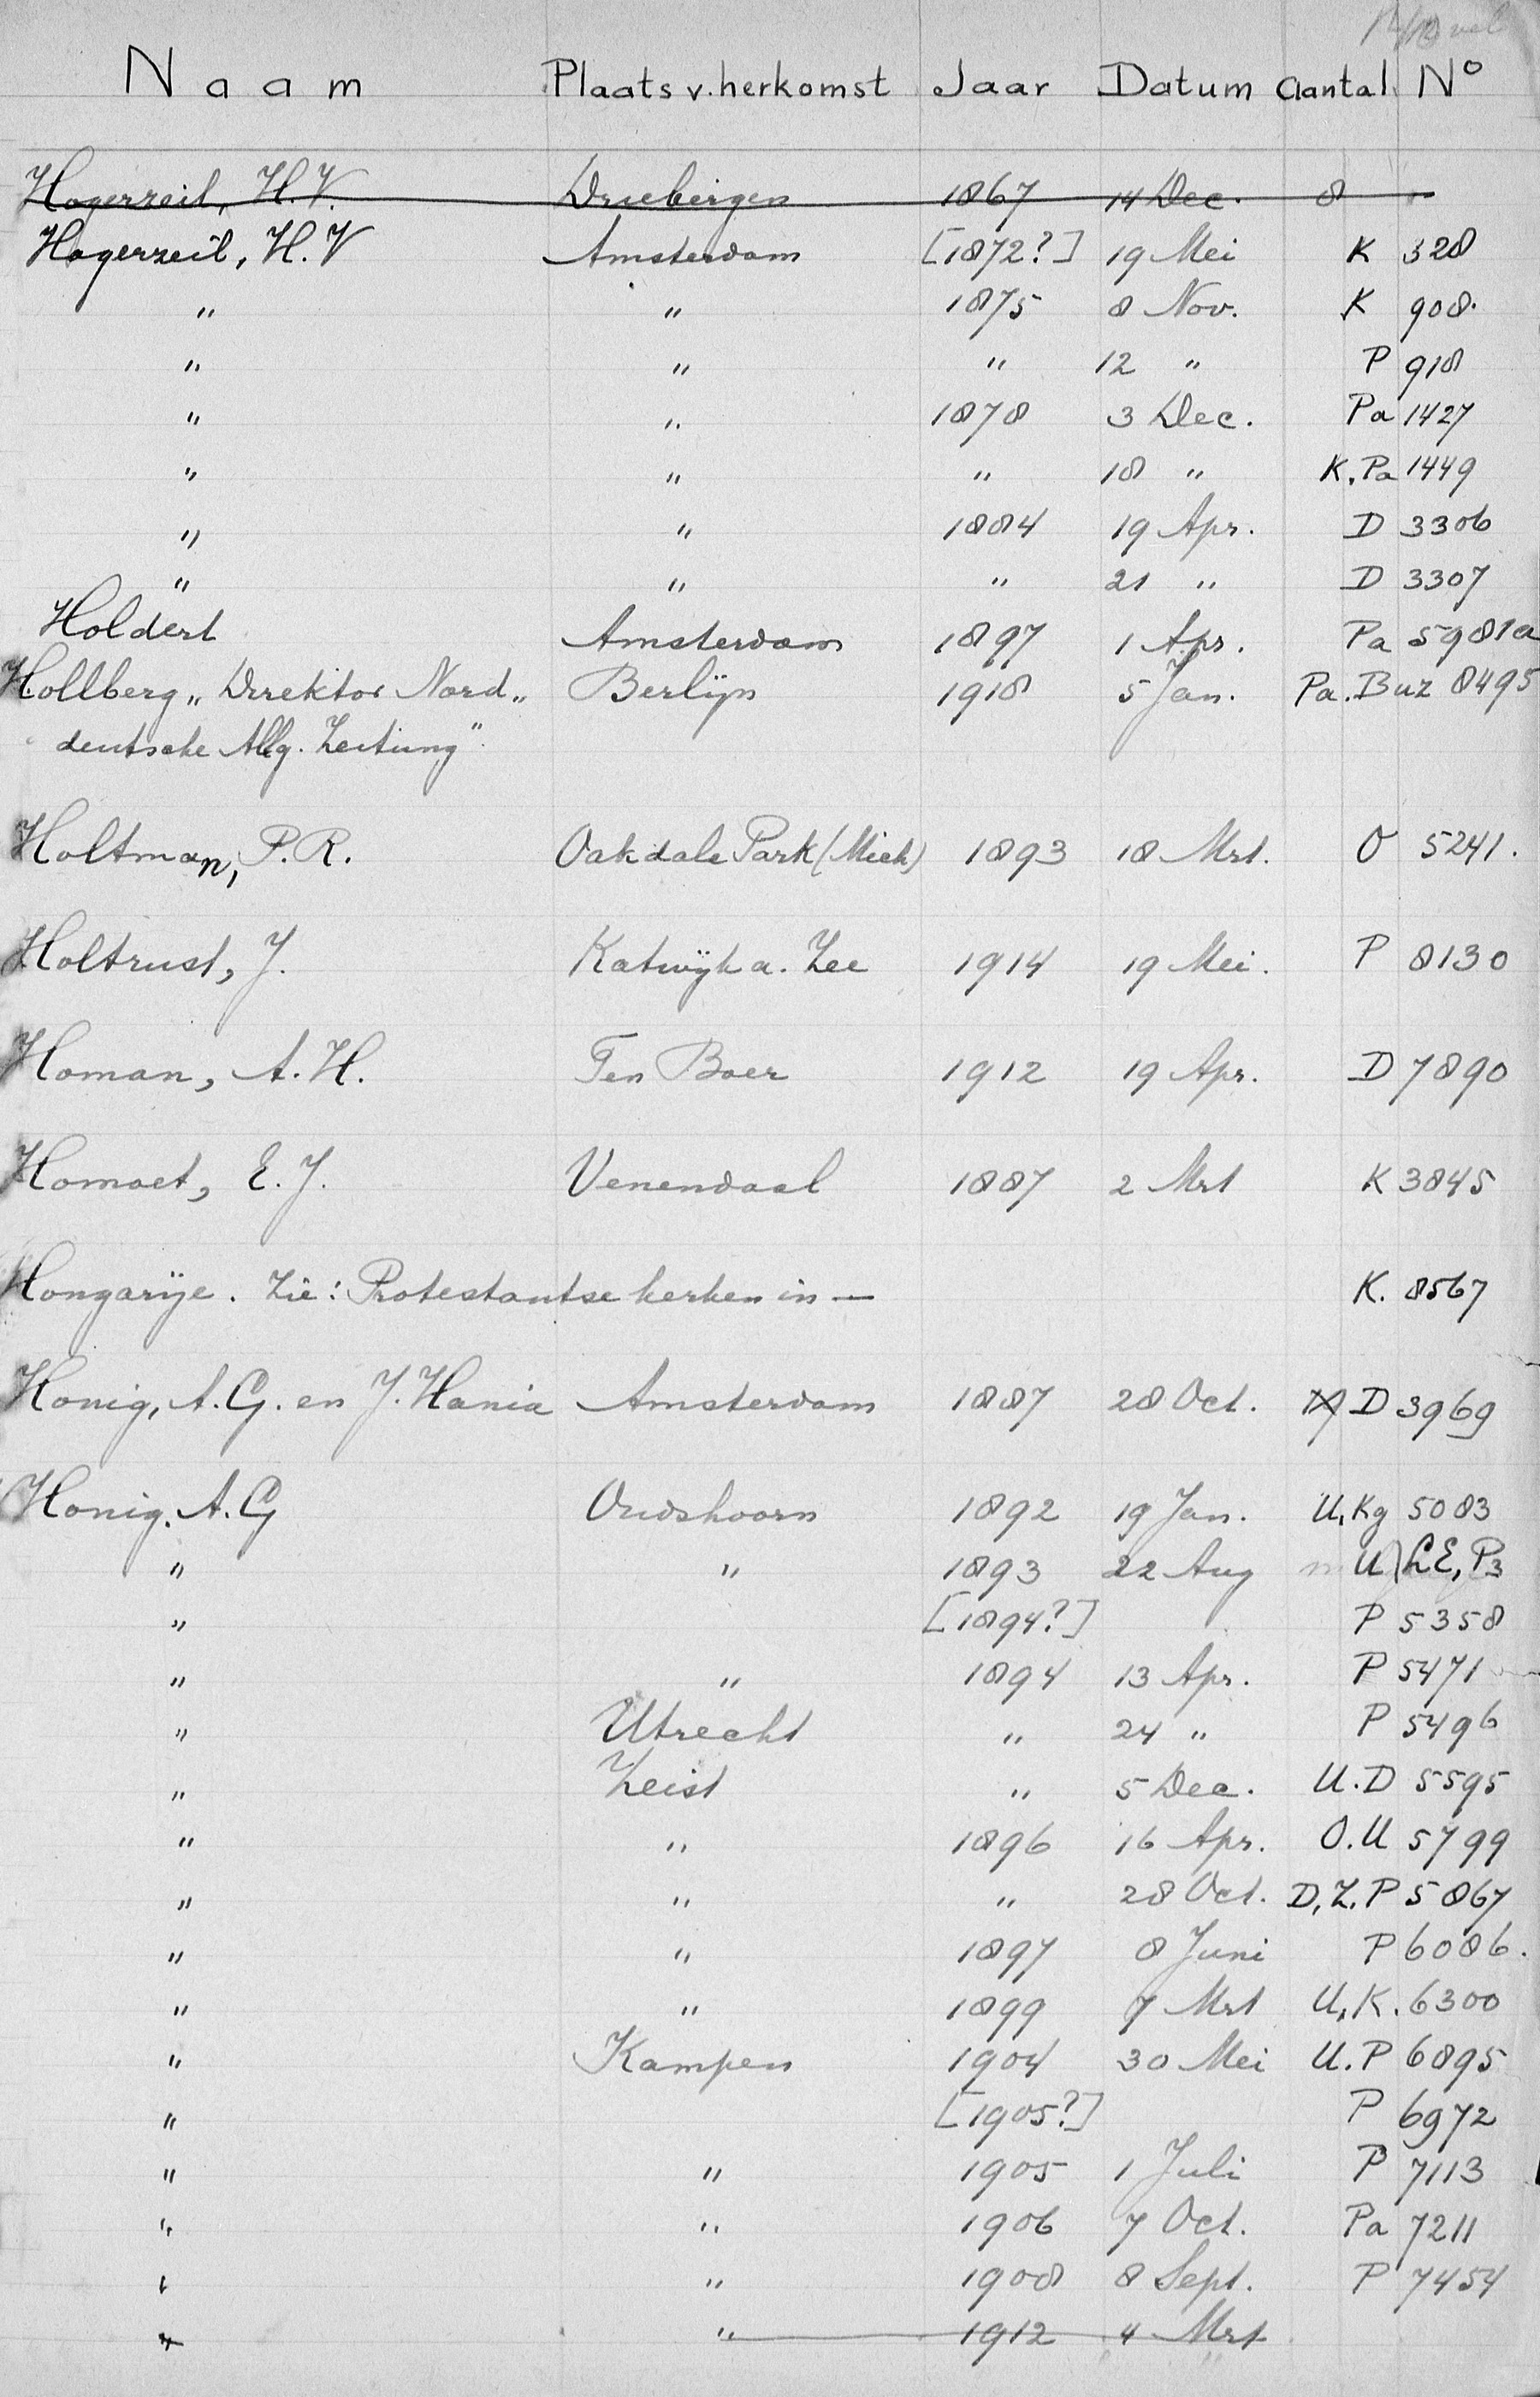 Naam Plaats v. herkomst Jaar Datum Aantal No
Hogerzeil, H.V. Driebergen 1867 14 Dec. 8 "
Hogerzeil, H.V Amsterdam [1872?] 19 Mei K 328
" " 1875 8 Nov. K 908.
" " " 12 " P 918
" " 1878 3 Dec. Pa 1427
" " " 18 " K.Pa 1449
" " 1884 19 Apr. D 3306
" " " 21 " D 3307
Holdert Amsterdam 1897 1 Apr. Pa 5981a
Hollberg „Direktor Nord„ Berlijn 1918 5 Jan. Pa. Buz 8495
deutsche Allg. Zeitung"
Holtman, P.R. Oakdale Park (Mich) 1893 18 Mrt. O 5241.
Holtrust, J. Katwijk a. Zee 1914 19 Mei. P 8130
Homan, A.H. Ten Boer 1912 19 Apr. D 7890
Homoet, E.J. Venendaal 1887 2 Mrt K 3845
Hongarije. Zie: Protestantse kerken in — K. 8567
Honig, A.G. en J. Hania Amsterdam 1887 28 Oct. D 3969
Honig. A.G Oudshoorn 1892 19 Jan. U, Kg 5083
" " 1893 22 Aug U LE, P3
" [1894?] P 5358
" " 1894 13 Apr. P 5471
" Utrecht " 24 " P 5496
" Zeist " 5 Dec. U.D 5595
" " 1896 16 Apr. O.U 5799
" " " 28 Oct. D, Z. P 5867
" " 1897 8 Juni P 6086.
" " 1899 7 Mrt U, K. 6300
" Kampen 1904 30 Mei U.P 6895
" [1905?] P 6972
" " 1905 1 Juli P 7113
" " 1906 7 Oct. Pa 7211
" " 1908 8 Sept. P 7454
" " 1912 4 Mrt